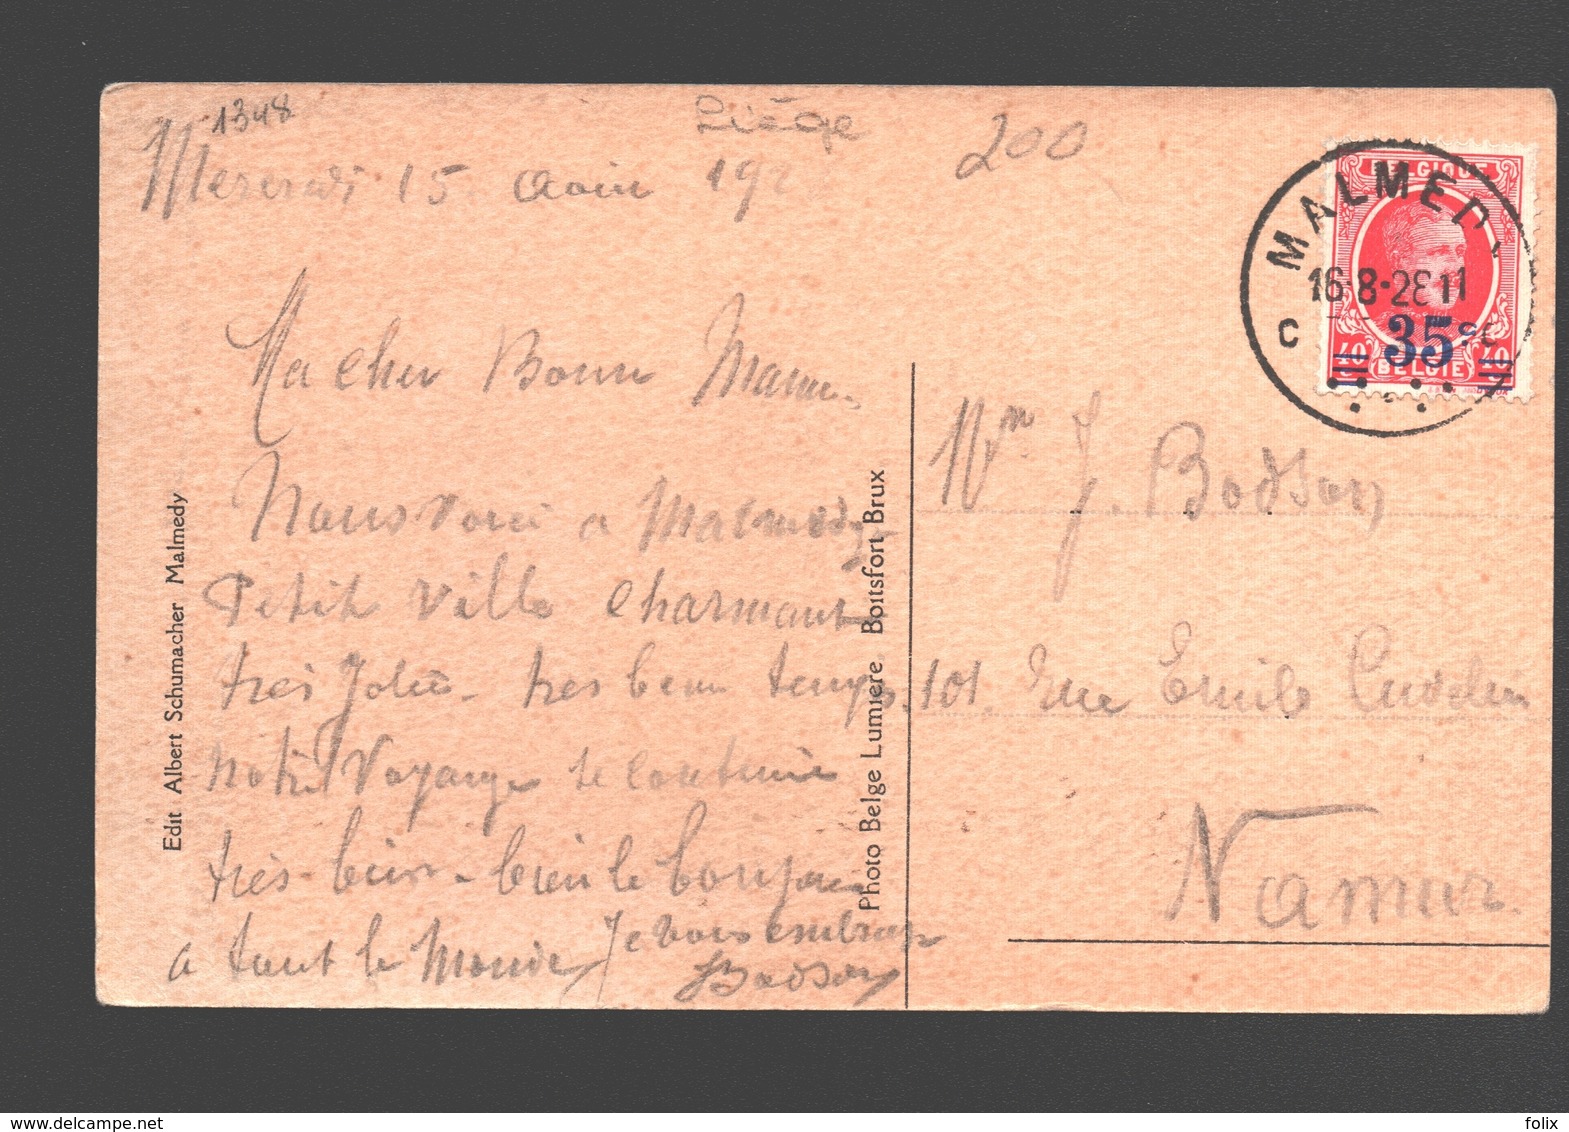 1348
Liége
200
Mercredi 15 Aoin 192
Ma cher Bonn Maman.
Nous voici a Malmedy
Petit ville Charmant
tres Jolie - tres beau temps.
notre Voyange se continuie
tres - bien - bien le bonjour
a tout le Monde Je vous embrasse
J Bodson
Edit Albert Schumacher Malmedy
Photo Belge Lumiere Boitsfort Brux
BELGIQUE
MALMEDY
16-8-28 11
C C
35c
40 40
BELGIE
J. Bodson
101. Rue Emile Cuvelier
Namur.
www.delcampe.net
folix